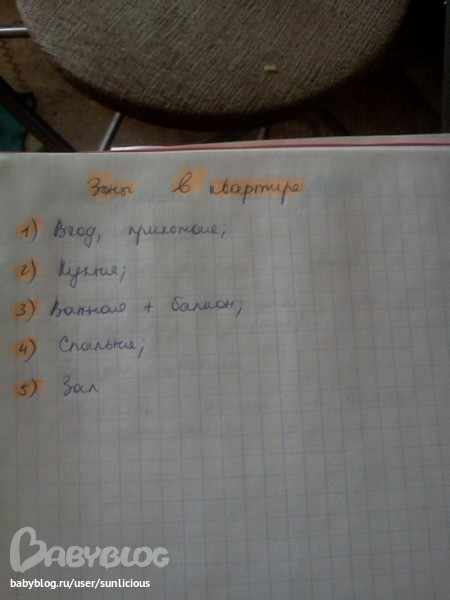 Зоны в квартире
1) Вход, прихожая;
2) Кухня;
3) Ванная + балкон;
4) Спальня;
5) Зал
BABYBLOG
babyblog.ru/user/sunlicious